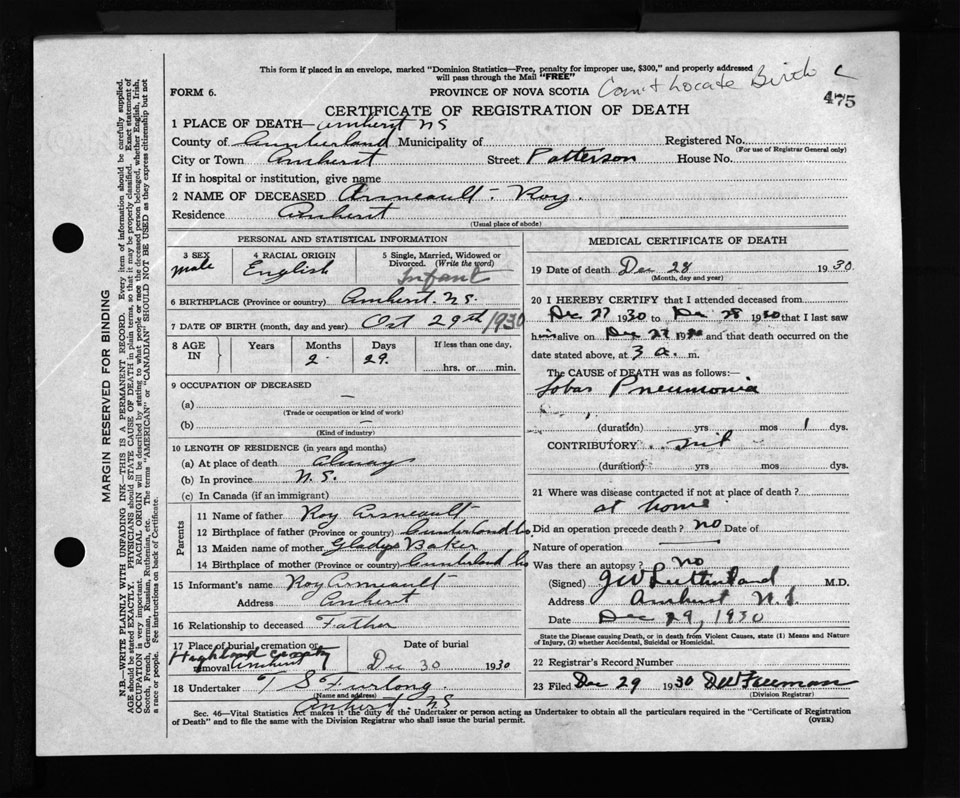 This form if placed in an envelope, marked "Dominion Statistics—Free, penalty for improper use, $300," and properly addressed
will pass through the Mail "FREE"
FORM 6.
PROVINCE OF NOVA SCOTIA
Can't Locate Birth
475
CERTIFICATE OF REGISTRATION OF DEATH
1 PLACE OF DEATH— Amherst NS
County of Cumberland Municipality of Registered No.
(For use of Registrar General only)
City or Town Amherst Street Patterson House No.
If in hospital or institution, give name
2 NAME OF DECEASED Arsneault - Roy.
Residence Amherst
(Usual place of abode)
PERSONAL AND STATISTICAL INFORMATION
3 SEX male
4 RACIAL ORIGIN English
5 Single, Married, Widowed or Divorced. (Write the word) Infant
6 BIRTHPLACE (Province or country) Amherst. NS.
7 DATE OF BIRTH (month, day and year) Oct 29th 1930
8 AGE IN Years Months 2 Days 29. If less than one day,
hrs. or min.
9 OCCUPATION OF DECEASED
(a) —
(Trade or occupation or kind of work)
(b) —
(Kind of industry)
10 LENGTH OF RESIDENCE (in years and months)
(a) At place of death always
(b) In province N.S.
(c) In Canada (if an immigrant)
Parents
11 Name of father Roy Arsneault
12 Birthplace of father (Province or country) Cumberland Co.
13 Maiden name of mother Gladys Baker
14 Birthplace of mother (Province or country) Cumberland Co
15 Informant's name Roy Arsneault
Address Amherst
16 Relationship to deceased Father
17 Place of burial, cremation or removal Highland Amherst
Date of burial Dec 30 1930
18 Undertaker T S Furlong.
(Name and address)
Amherst. NS
MEDICAL CERTIFICATE OF DEATH
19 Date of death Dec 28 1930
(Month, day and year)
20 I HEREBY CERTIFY that I attended deceased from
Dec 27 1930 to Dec 28 1930 that I last saw
him alive on Dec 27 1930 and that death occurred on the
date stated above, at 3 a. m.
The CAUSE of DEATH was as follows:—
Lobar Pneumonia
(duration) yrs mos 1 dys.
CONTRIBUTORY nil
(duration) yrs mos dys.
21 Where was disease contracted if not at place of death?
at home
Did an operation precede death? no Date of
Nature of operation
Was there an autopsy? no
(Signed) J W Sutherland M.D.
Address Amherst N.S.
Date Dec 29, 1930
State the Disease causing Death, or in death from Violent Causes, state (1) Means and Nature
of Injury, (2) whether Accidental, Suicidal or Homicidal.
22 Registrar's Record Number
23 Filed Dec 29 1930 DW Freeman
(Division Registrar)
Sec. 46—Vital Statistics Act makes it the duty of the Undertaker or person acting as Undertaker to obtain all the particulars required in the "Certificate of Registration
of Death" and to file the same with the Division Registrar who shall issue the burial permit.
(OVER)
MARGIN RESERVED FOR BINDING
N.B.—WRITE PLAINLY WITH UNFADING INK—THIS IS A PERMANENT RECORD. Every item of information should be carefully supplied.
AGE should be stated EXACTLY. PHYSICIANS should STATE CAUSE OF DEATH in plain terms, so that it may be properly classified. Exact statement of
OCCUPATION is very important. RACIAL ORIGIN will be described by stating to what people or race the deceased person belonged, whether English, Irish,
Scotch, French, German, Russian, Ruthenian, etc. The terms "AMERICAN" or "CANADIAN" SHOULD NOT BE USED as they express citizenship but not
a race or people. See instructions on back of Certificate.